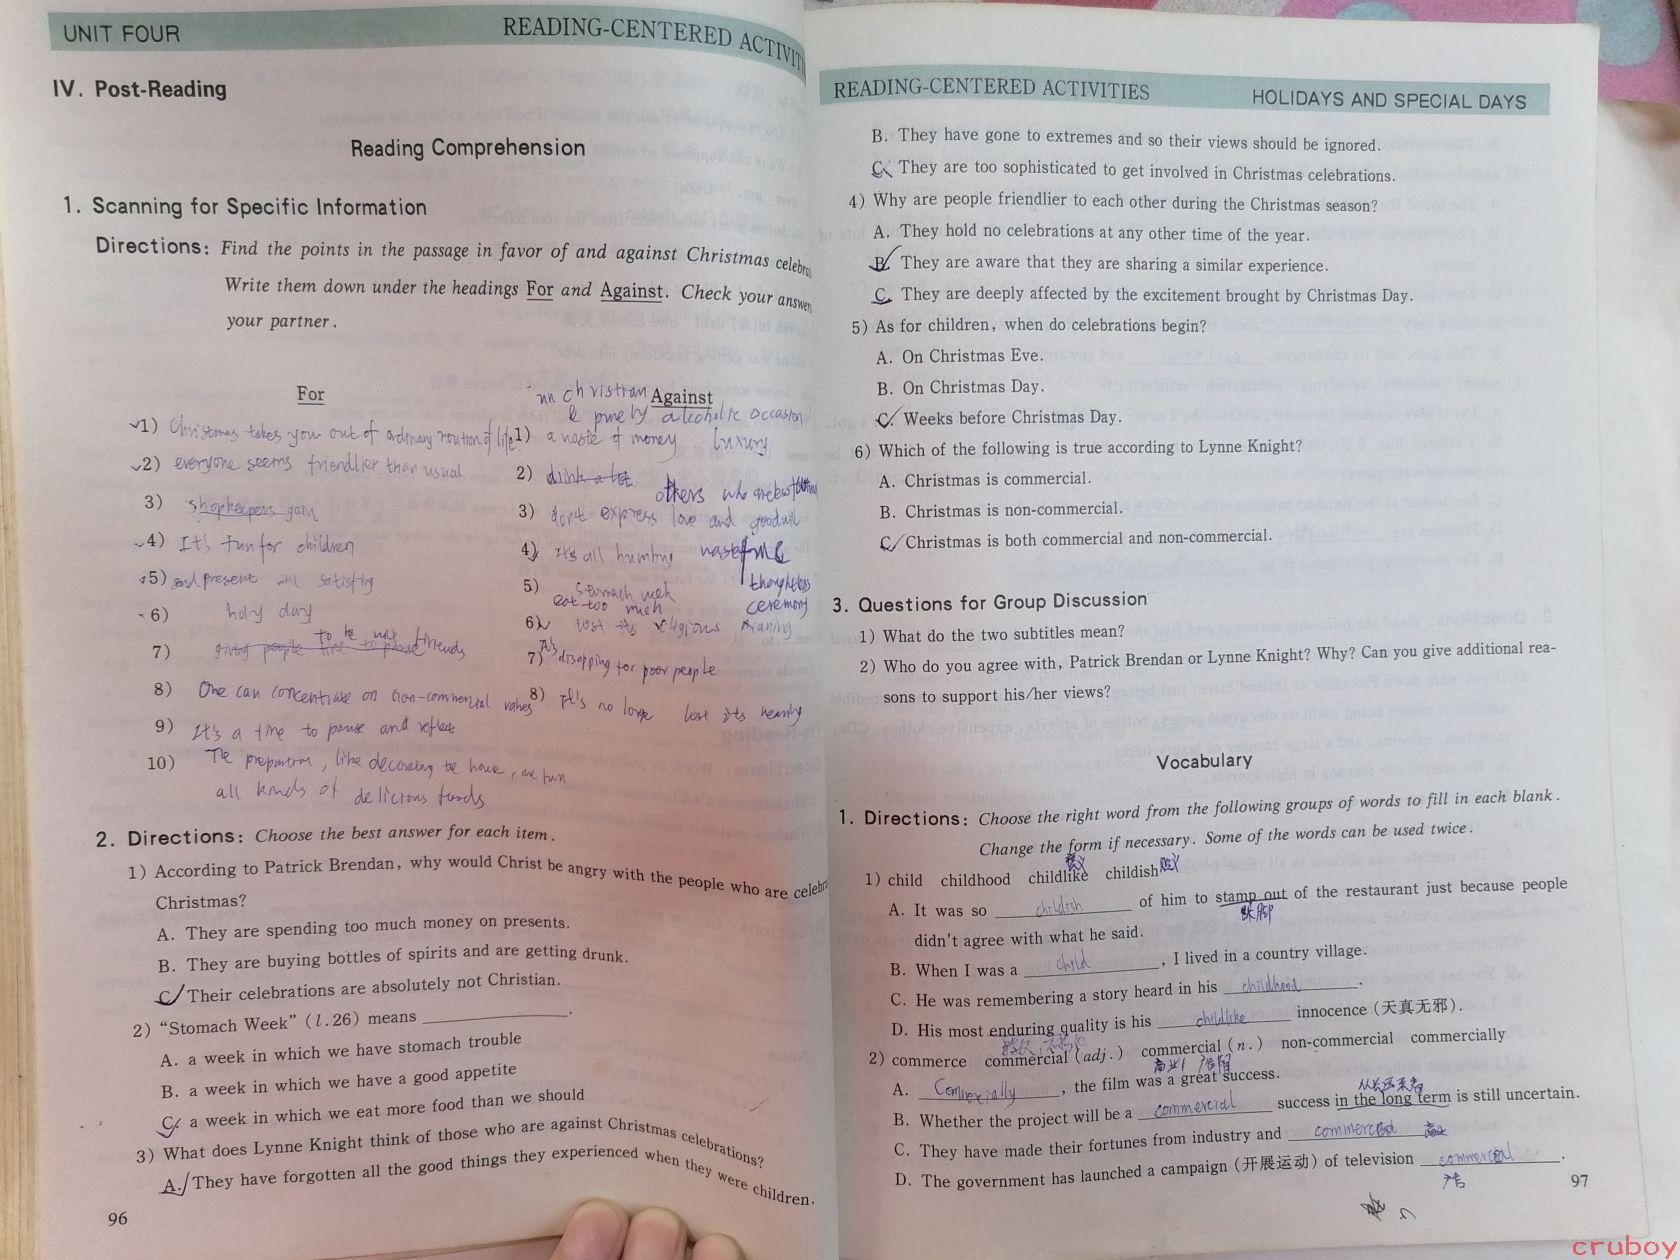 UNIT FOUR
READING-CENTERED ACTIVITI
IV. Post-Reading
Reading Comprehension
1. Scanning for Specific Information
Directions: Find the points in the passage in favor of and against Christmas celebra
Write them down under the headings For and Against. Check your answer
your partner.
For
un christian
Against
& purely alcoholic occasion
1) Christmas takes you out of ordinary roution of life
1) a waste of money luxury
2) everyone seems friendlier than usual
2) drink a lot
others who are
3) shopkeepers gain
3) don't express love and goodwill
4) It's fun for children
4) It's all humbug wasteful &
5) present satisfing
5) stomach week
thoughtless
eat too much
ceremony
6) holy day
6) lost its religious meaning
7) giving people time to pause
to be with friends
7) disapping for poor people
8) One can concentrate on non-commercial values
8) It's no longe lost its meaning
9) It's a time to pause and reflect
10) The prepartion, like decorating the house, are fun
all kinds of delicious foods
2. Directions: Choose the best answer for each item.
1) According to Patrick Brendan, why would Christ be angry with the people who are celebra
Christmas?
A. They are spending too much money on presents.
B. They are buying bottles of spirits and are getting drunk.
C. Their celebrations are absolutely not Christian.
2) “Stomach Week” (l.26) means ______.
A. a week in which we have stomach trouble
B. a week in which we have a good appetite
C. a week in which we eat more food than we should
3) What does Lynne Knight think of those who are against Christmas celebrations?
A. They have forgotten all the good things they experienced when they were children.
96
READING-CENTERED ACTIVITIES
HOLIDAYS AND SPECIAL DAYS
B. They have gone to extremes and so their views should be ignored.
C. They are too sophisticated to get involved in Christmas celebrations.
4) Why are people friendlier to each other during the Christmas season?
A. They hold no celebrations at any other time of the year.
B. They are aware that they are sharing a similar experience.
C. They are deeply affected by the excitement brought by Christmas Day.
5) As for children, when do celebrations begin?
A. On Christmas Eve.
B. On Christmas Day.
C. Weeks before Christmas Day.
6) Which of the following is true according to Lynne Knight?
A. Christmas is commercial.
B. Christmas is non-commercial.
C. Christmas is both commercial and non-commercial.
3. Questions for Group Discussion
1) What do the two subtitles mean?
2) Who do you agree with, Patrick Brendan or Lynne Knight? Why? Can you give additional rea-
sons to support his/her views?
Vocabulary
1. Directions: Choose the right word from the following groups of words to fill in each blank.
Change the form if necessary. Some of the words can be used twice.
褒义 贬义
1) child childhood childlike childish
A. It was so childish of him to stamp out of the restaurant just because people
跺脚
didn't agree with what he said.
B. When I was a child, I lived in a country village.
C. He was remembering a story heard in his childhood.
D. His most enduring quality is his childlike innocence (天真无邪).
2) commerce commercial (adj.) commercial (n.) non-commercial commercially
商业
A. Commercially, the film was a great success.
从长远来看
B. Whether the project will be a commercial success in the long term is still uncertain.
C. They have made their fortunes from industry and 商业
D. The government has launched a campaign (开展运动) of television commercial.
广告
97
cruboy